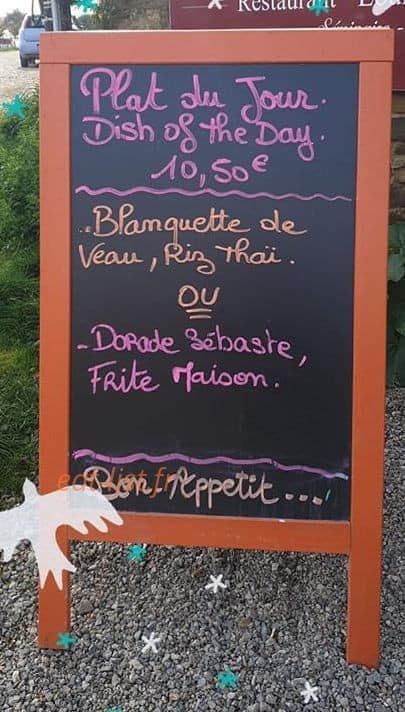 Restaurant
Plat du Jour.
Dish of the Day.
10,50€
-Blanquette de
Veau, Riz Thaï.
OU
-Dorade Sébaste,
Frite Maison.
Bon Appetit...